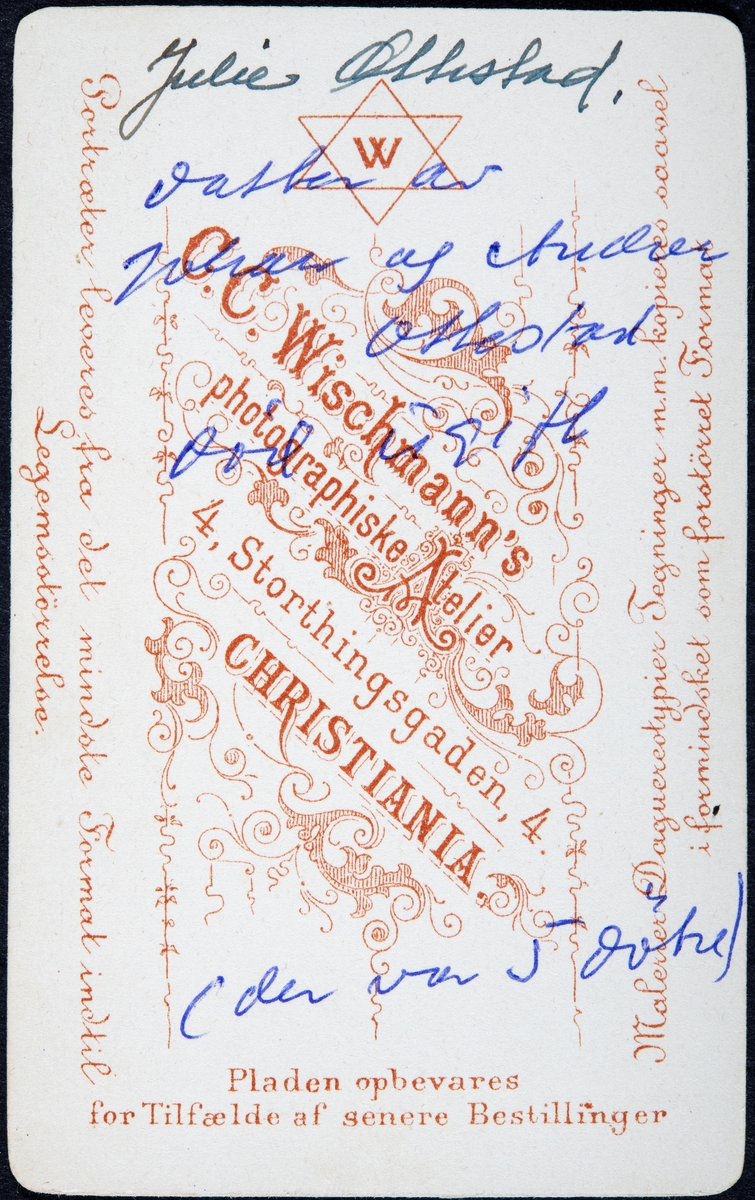 Julie Othestad.
W
datter av
Johan og Andrea
Othestad
død ugift
C. C. Wischmann's
photographiske Atelier
4, Storthingsgaden, 4.
CHRISTIANIA.
(der var 5 døtre)
Portræter leveres fra det mindste Format indtil
Legemsstörrelse.
Malerier, Daguerreotypier Tegninger m.m. kopieres saavel
i formindsket som forstörret Format.
Pladen opbevares
for Tilfælde af senere Bestillinger